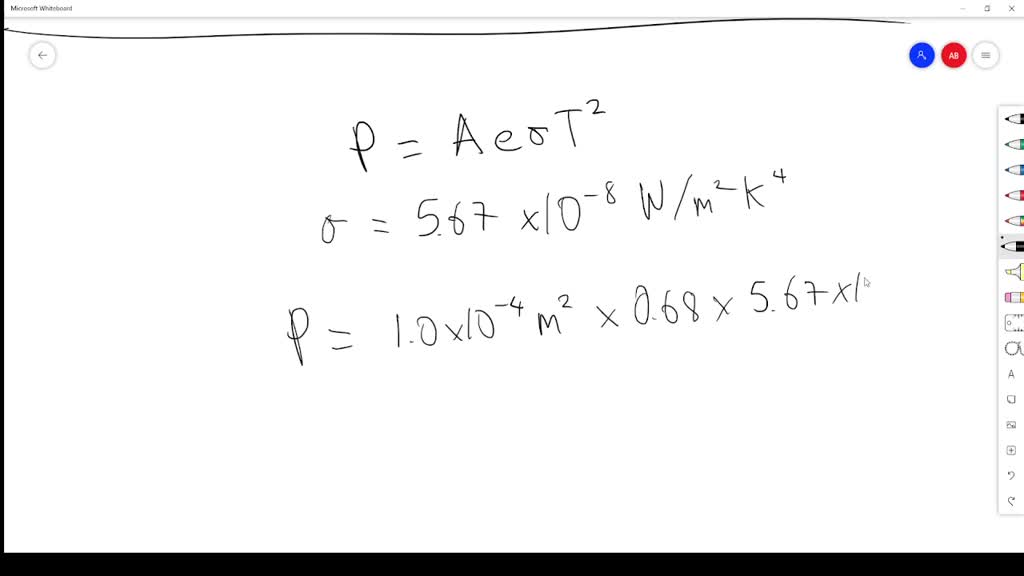 Microsoft Whiteboard
AB
P = AeσT²
σ = 5.67 ×10⁻⁸ W/m²-K⁴
P = 1.0×10⁻⁴ m² × 0.68 × 5.67 ×1
A